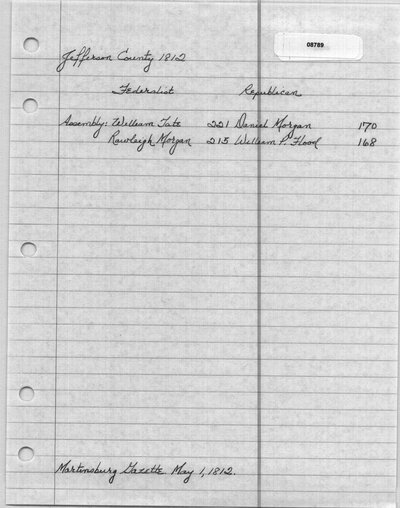 08789
Jefferson County 1812
Federalist Republican
Assembly: William Tate 221 Daniel Morgan 170
Rawleigh Morgan 215 William P. Flood 168
Martinsburg Gazette May 1, 1812.